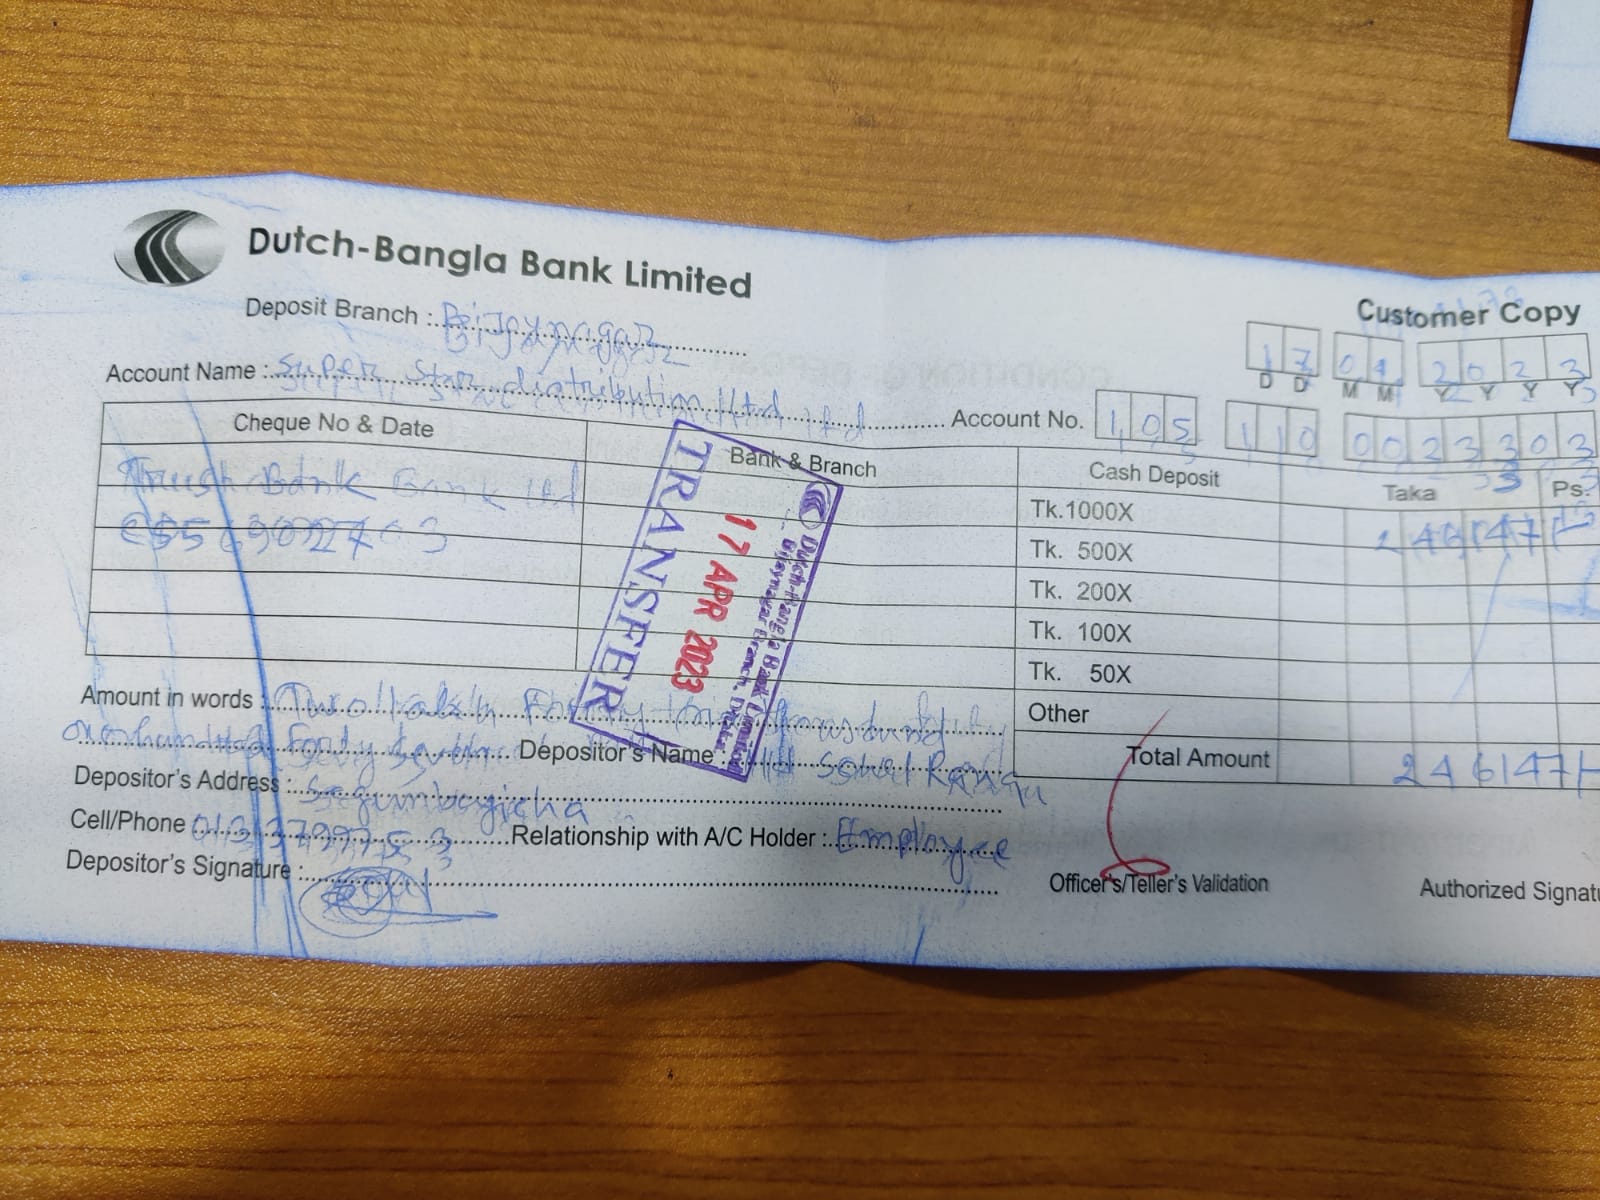 Dutch-Bangla Bank Limited
Customer Copy
Deposit Branch : Bijoynagar
17 04 2023
D D M M Y Y Y Y
Account Name : Super Star distribution Ltd
Account No. 105 110 0023303
Cheque No & Date
Bank & Branch
Cash Deposit
Taka
Ps.
Bank Ltd
Tk.1000X
246147/-
Tk. 500X
Tk. 200X
Tk. 100X
Tk. 50X
Other
Total Amount
246147/-
TRANSFER
17 APR 2023
Dutch-Bangla Bank Limited
Bijoynagar Branch, Dhaka.
Amount in words : Two lakh Forty thousand
one hundred Forty Seven Depositor's Name : Rana
Depositor's Address : Segunbagicha
Cell/Phone Relationship with A/C Holder : Employee
Depositor's Signature :
Officer's/Teller's Validation
Authorized Signatu